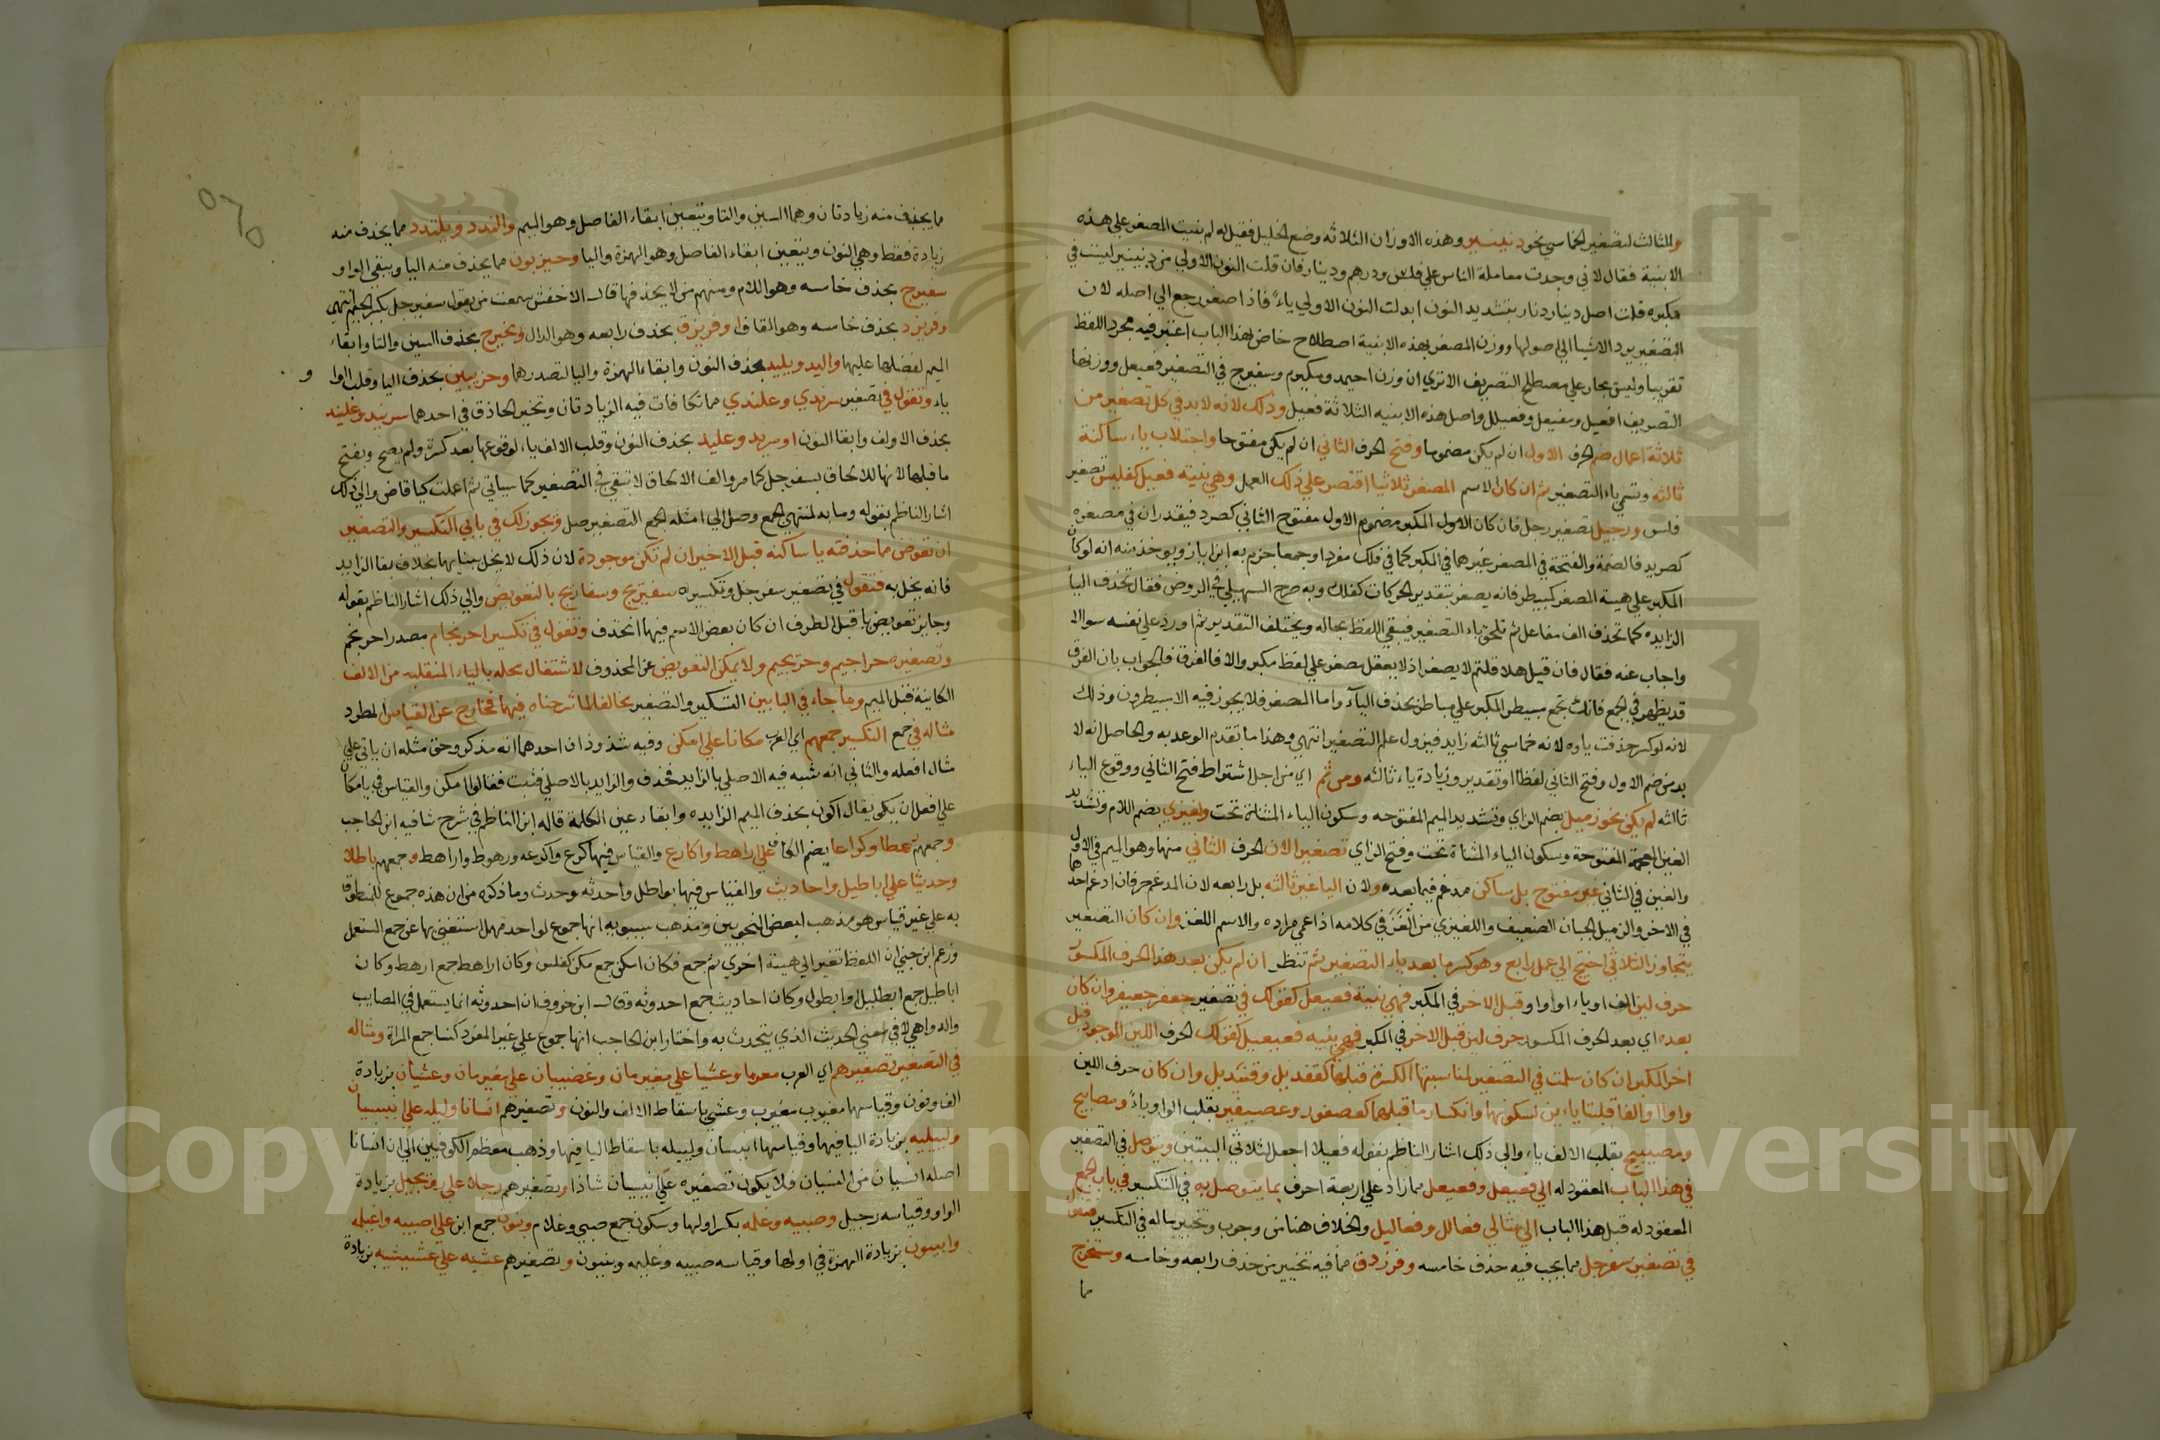 والمثالث لتصغير الخماسي نحو دنينير وهذه الاوزان الثلاثه وضع الخليل فقيل له لم بنيت المصغر على هذه
الابنية فقال لاني وجدت معاملة الناس على فلس ودرهم ودينار فان قلت النون الاولي من دنينير ليست في
مكبره قلت اصل دينار دنار بتشديد النون ابدلت النون الاولي ياء فاذا صغر رجع الي اصله لان
التصغير يرد الاشيا الي اصولها ووزن المصغر بهذه الابنية اصطلاح خاص بهذا الباب اعتبر فيه مجرد اللفظ
تقريبا وليس بجار علي مصطلح التصريف الاتري ان وزن احيمد ومكيرم وسفيرج في التصغير فعيعل ووزنها
التصريفي افيعل ومفيعل وفعيلل واصل هذه الابنيه الثلاثة فعيل وذلك لانه لابد في كل تصغير من
ثلاثة اعمال ضم الحرف الاول ان لم يكن مضموما وفتح الحرف الثاني ان لم يكن مفتوحا واجتلاب ياء ساكنة
ثالثه وتسمي ياء التصغير ثم ان كان الاسم المصغر ثلاثيا اقتصر علي ذلك العمل وهي بنيته فعيل كفليس تصغير
فلس ورجيل تصغير رجل فان كان الاول المكبر مضموم الاول مفتوح الثاني كصرد فيقدر ان في مصغره
كصريد فالضمة والفتحة في المصغر غيرهما في المكبر كما في فلك مفردا وجمعا جزم به ابن اياز ويوخذ منه انه لو كان
المكبر علي هيئة المصغر كمبيطر فانه يصغر بتقدير الحركات كفلك وبه صرح السهيلي في الروض فقال تحذف اليا
الزايده كما تحذف الف مفاعل ثم تلحق ياء التصغير فيبقي اللفظ بحاله ويختلف التقدير ثم اورد علي نفسه سوالا
واجاب عنه فقال فان قيل هلا قلتم لا يصغر اذ لا يعقل مصغر علي لفظ مكبر والا فالفرق فالجواب بان الفرق
قد يظهر في الجمع فانك تجمع مبيطر المكبر علي مباطر بحذف الياء واما المصغر فلا يجوز فيه الا مبيطرون وذلك
لانه لو كسر حذفت ياوه لانه خماسي ثالثه زايد فيزول علم التصغير انتهي وهذا ما تقدم الوعد به والحاصل انه لا
بد من ضم الاول وفتح الثاني لفظا او تقدير وزيادة ياء ثالثه ومن ثم اي من اجل اشتراط فتح الثاني ووقوع الياء
ثالثه لم يكن نحو زميل بضم الزاي وتشديد الميم المفتوحه وسكون الياء المثناة تحت ولغيزي بضم اللام وتشديد
الغين المعجمة المفتوحة وسكون الياء المثناة تحت وفتح الزاي تصغيرا لان الحرف الثاني منها وهو الميم في الاول
والغين في الثاني غير مفتوح بل ساكن مدغم فيما بعده ولان اليا غير ثالثه بل رابعه لان المدغم حرفان ادغم احدهما
في الاخر والزميل الجبان الضعيف واللغيزي من الغز في كلامه اذا عمي مراده والاسم اللغز وان كان التصغير
يتجاوز الثلاثي احتيج الي عمل رابع وهو كسر ما بعد ياء التصغير ثم تنظر ان لم يكن بعد هذا الحرف المكسور
حرف لين الف او ياء او واو قبل الاخر في المكبر فهي بنية فعيعل كقولك في تصغير جعفر جعيفر وان كان
بعده اي بعد الحرف المكسور حرف لين قبل الاخر في المكبر فهي بنيه فعيعيل كقولك الحرف اللين الموجود قبل
اخر المكبر ان كان سلمت في التصغير لمناسبتها الكسرة قبلها كقنديل وقنيديل وان كان حرف اللين
واوا او الفا قلبتا ياءين لسكونها وانكسار ما قبلهما كعصفور وعصيفير بقلب الواو ياء ومصابيح
ومصيبيح بقلب الالف ياء والي ذلك اشار الناظم بقوله فعيلا اجعل الثلاثي البيتين ويتوصل في التصغير
في هذا الباب المعقود له الي فعيعل وفعيعيل مما زاد علي اربعة احرف بما يتوصل به في التكسير في باب الجمع
المعقود له قبل هذا الباب الي مثالي فعالل وفعاليل والخلاف هنا من وجوب وتخيير ماله في التكسير فتقول
في تصغير سفرجل مما يجب فيه حذف خامسه وفرزدق مما فيه تخيير من حذف رابعه وخامسه ومستخرج
مما
مما يحذف منه زيادتان وهما السين والتا ويتعين ابقاء الفاصل وهو الميم والندد ويلندد مما يحذف منه
زيادة فقط وهي النون ويتعين ابقاء الفاصل وهو الهمزة واليا وحيزبون مما يحذف منه اليا ويبقي الواو
سفيرج بحذف خامسه وهو اللام ومنهم من لا يحذفها قال الاخفش سمعت من يقول سفيرجل بكسر الجيم انتهي
وفريزد بحذف خامسه وهو القاف او فريزق بحذف رابعه وهو الدال ومخيرج بحذف السين والتا وابقاء
الميم لفضلها عليها واليد ويليد بحذف النون وابقاء الهمزة واليا لتصدرهما وحزيبين بحذف اليا وقلب الواو
ياء وتقول في تصغير سرندي وعلندي مما تكافات فيه الزيادتان وتخير الحاذق في احدهما سريند وعليند
بحذف الاولف وابقا النون او سريد وعليد بحذف النون وقلب الالف ياء لوقوعها بعد كسرة ولم يصح ويفتح
ما قبلها لانها للالحاق بسفرجل كما مر والف الالحاق لا تبقي في التصغير كما سياتي ثم اعلت كياء قاض والي ذلك
اشار الناظم بقوله وما به لمنتهي الجمع وصل الي امثله الجمع التصغير صل ويجوز لك في بابي التكسير والتصغير
ان تعوض مما حذفته يا ساكنه قبل الاخير ان لم تكن موجودة لان ذلك لا يخل ببنايها بخلاف بقا الزايد
فانه يخل به فتقول في تصغير سفرجل وتكسيره سفيريج وسفاريج بالتعويض والي ذلك اشار الناظم بقوله
وجايز تعويض يا قبل الطرف ان كان بعض الاسم فيهما انحذف وتقول في تكسير احرنجام مصدر احرنجم
وتصغيره حراجيم وحريجيم ولا يمكن التعويض عن المحذوف لاشتغال محله بالياء المنقلبه من الالف
الكاينة قبل الميم وما جاء في البابين التكسير والتصغير مخالفا لما شرحناه فيهما فخارج عن القياس المطرد
مثاله في جمع التكسير جمعهم اي العرب مكانا علي امكن وفيه شذوذان احدهما انه مذكر وحق مثله ان ياتي علي
مثال افعله والثاني انه شبه فيه الاصلي بالزايد فحذف والزايد بالاصلي فثبت فقالوا امكن والقياس في يا مكان
علي افعل ان يكن يقال اكون بحذف الميم الزايده وابقاء عين الكلمة قاله ابن الناظم في شرح شافيه ابن الحاجب
وجمعهم رهطا وكراعا بضم الكاف علي اراهط واكارع والقياس فيها اكرع واكرعه ورهوط واراهط وجمعهم باطلا
وحديثا علي اباطيل واحاديث والقياس فيها بواطل واحدثه وحدث وما ذكره من ان هذه جموع للمنطوق
به علي غير قياس هو مذهب لبعض النحويين ومذهب سيبويه انها جموع لواحد مهمل استغني بها عن جمع المستعمل
وزعم ابن جني ان اللفظ تغير الي هيئة اخري ثم جمع فكان امكن جمع مكن كفلس وكان اراهط جمع ارهط وكان
اباطيل جمع ابطليل او ابطول وكان احاديث جمع احدوثه وقال ابن خروف ان احدوثه انما يستعمل في المصايب
والدواهي لا في معني الحديث الذي يتحدث به واختار ابن الحاجب انها جموع علي غير المفرد كنسا جمع المراة ومثاله
في التصغير تصغيرهم اي العرب مغربا وعشيا علي مغيربان وعشيان بزيادة
الف ونون وقياسها مغيرب وعشي باسقاط الالف والنون وتصغيرهم انسانا وليله علي انيسيان
ولييليه بزيادة اليا فيهما وقياسها انيسان ولييله باسقاط اليا فيها وذهب معظم الكوفيين الي ان انسانا
اصله انسيان من النسيان فلا يكون تصغيره علي انيسيان شاذا وتصغيرهم رجلا علي رويجل بزيادة
الواو وقياسه رجيل وصبيه وغلمه بكسر اولها وسكون جمع صبي وغلام وبنون جمع ابن علي اصيبيه واغيلمه
وابينون بزيادة الهمزة في اولها وقياسه صبيه وغليمه وبنيون وتصغيرهم عشيه علي عشيشيه بزيادة
Copyright © King Saud University